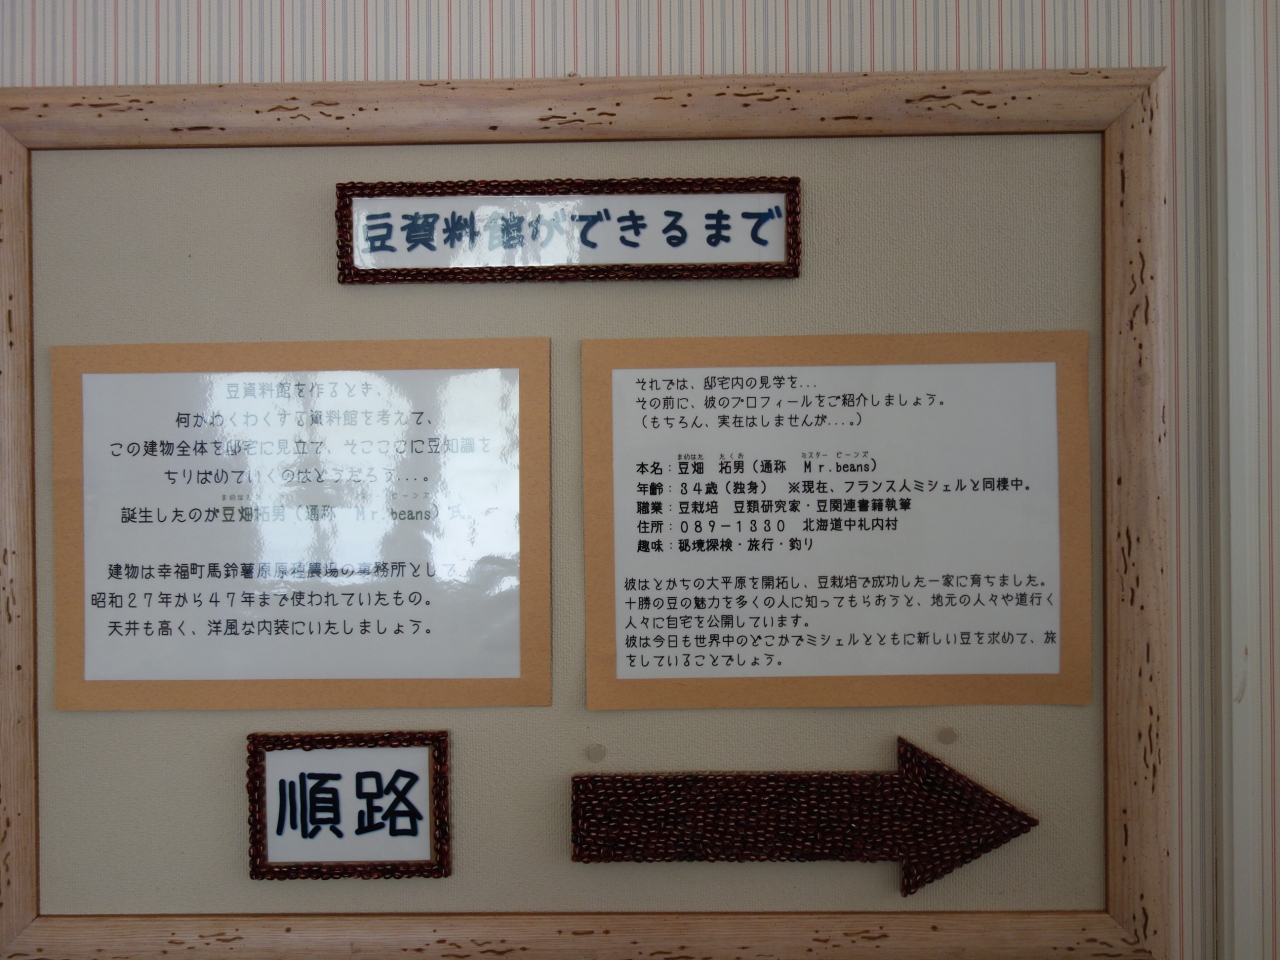 豆資料館ができるまで
豆資料館を作るとき、
何かわくわくする資料館を考えて、
この建物全体を邸宅に見立て、そこここに豆知識を
ちりばめていくのはどうだろう...。
まめはた たくお ミスター ビーンズ
誕生したのが豆畑拓男（通称 Mr.beans）氏。
建物は幸福町馬鈴薯原原種農場の事務所として、
昭和２７年から４７年まで使われていたもの。
天井も高く、洋風な内装にいたしましょう。
それでは、邸宅内の見学を...
その前に、彼のプロフィールをご紹介しましょう。
（もちろん、実在はしませんが...。）
まめはた たくお ミスター ビーンズ
本名：豆畑 拓男（通称 Mr.beans）
年齢：３４歳（独身） ※現在、フランス人ミシェルと同棲中。
職業：豆栽培 豆類研究家・豆関連書籍執筆
住所：０８９－１３３０ 北海道中札内村
趣味：秘境探検・旅行・釣り
彼はとかちの大平原を開拓し、豆栽培で成功した一家に育ちました。
十勝の豆の魅力を多くの人に知ってもらおうと、地元の人々や道行く
人々に自宅を公開しています。
彼は今日も世界中のどこかでミシェルとともに新しい豆を求めて、旅
をしていることでしょう。
順路